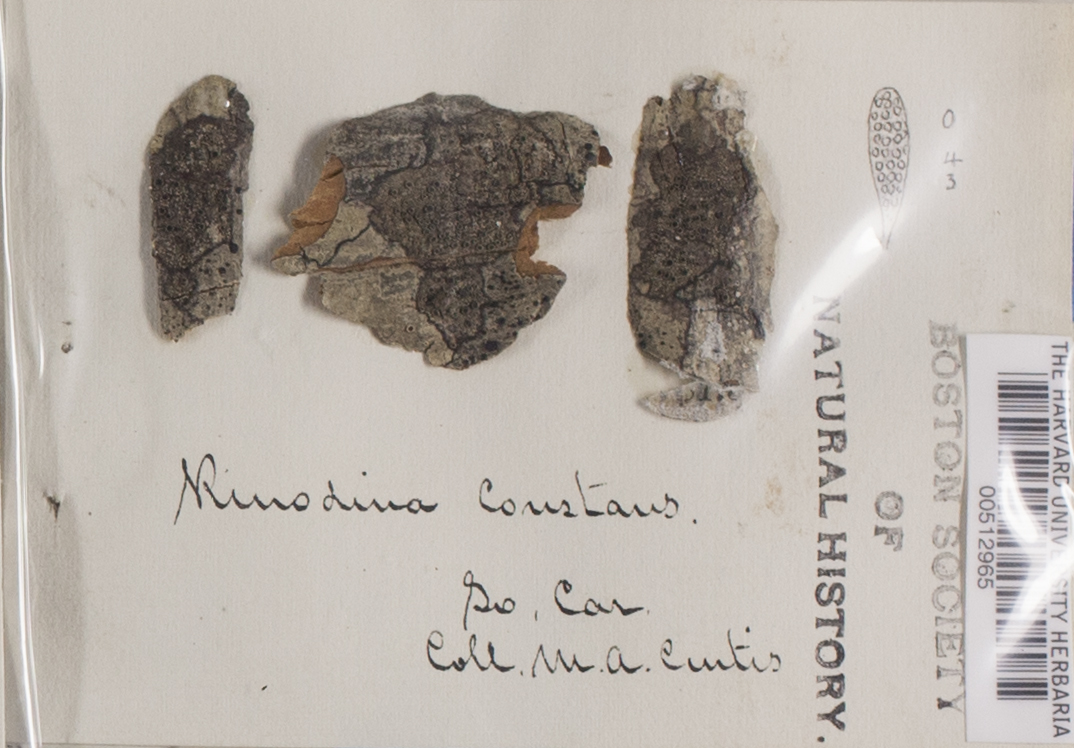 Rinodina Constans.
So. Car.
Coll. M. A. Curtis
0
43
BOSTON SOCIETY
OF
NATURAL HISTORY.
THE HARVARD UNIVERSITY HERBARIA
00512965